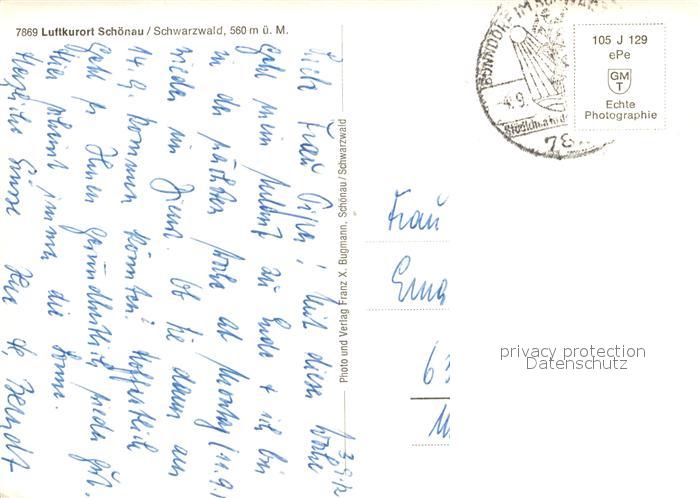 7869 Luftkurort Schönau / Schwarzwald, 560 m ü. M.
105 J 129
ePe
GM
T
Echte
Photographie
BONNDORF IM SCHWARZ
.9.
78
Photo und Verlag Franz X. Bugmann, Schönau/Schwarzwald
13.9.
Frau
mit dieser Woche
geht mein zu Ende + ich bin
in der nächsten Woche ab Montag
wieder im Dienst. Ob Sie dann am
14.9. kommen könnten? Hoffentlich
geht es Ihnen gesundheitlich wieder gut.
Hier scheint immer die Sonne.
Herzliche Grüsse
Frau
63
privacy protection
Datenschutz